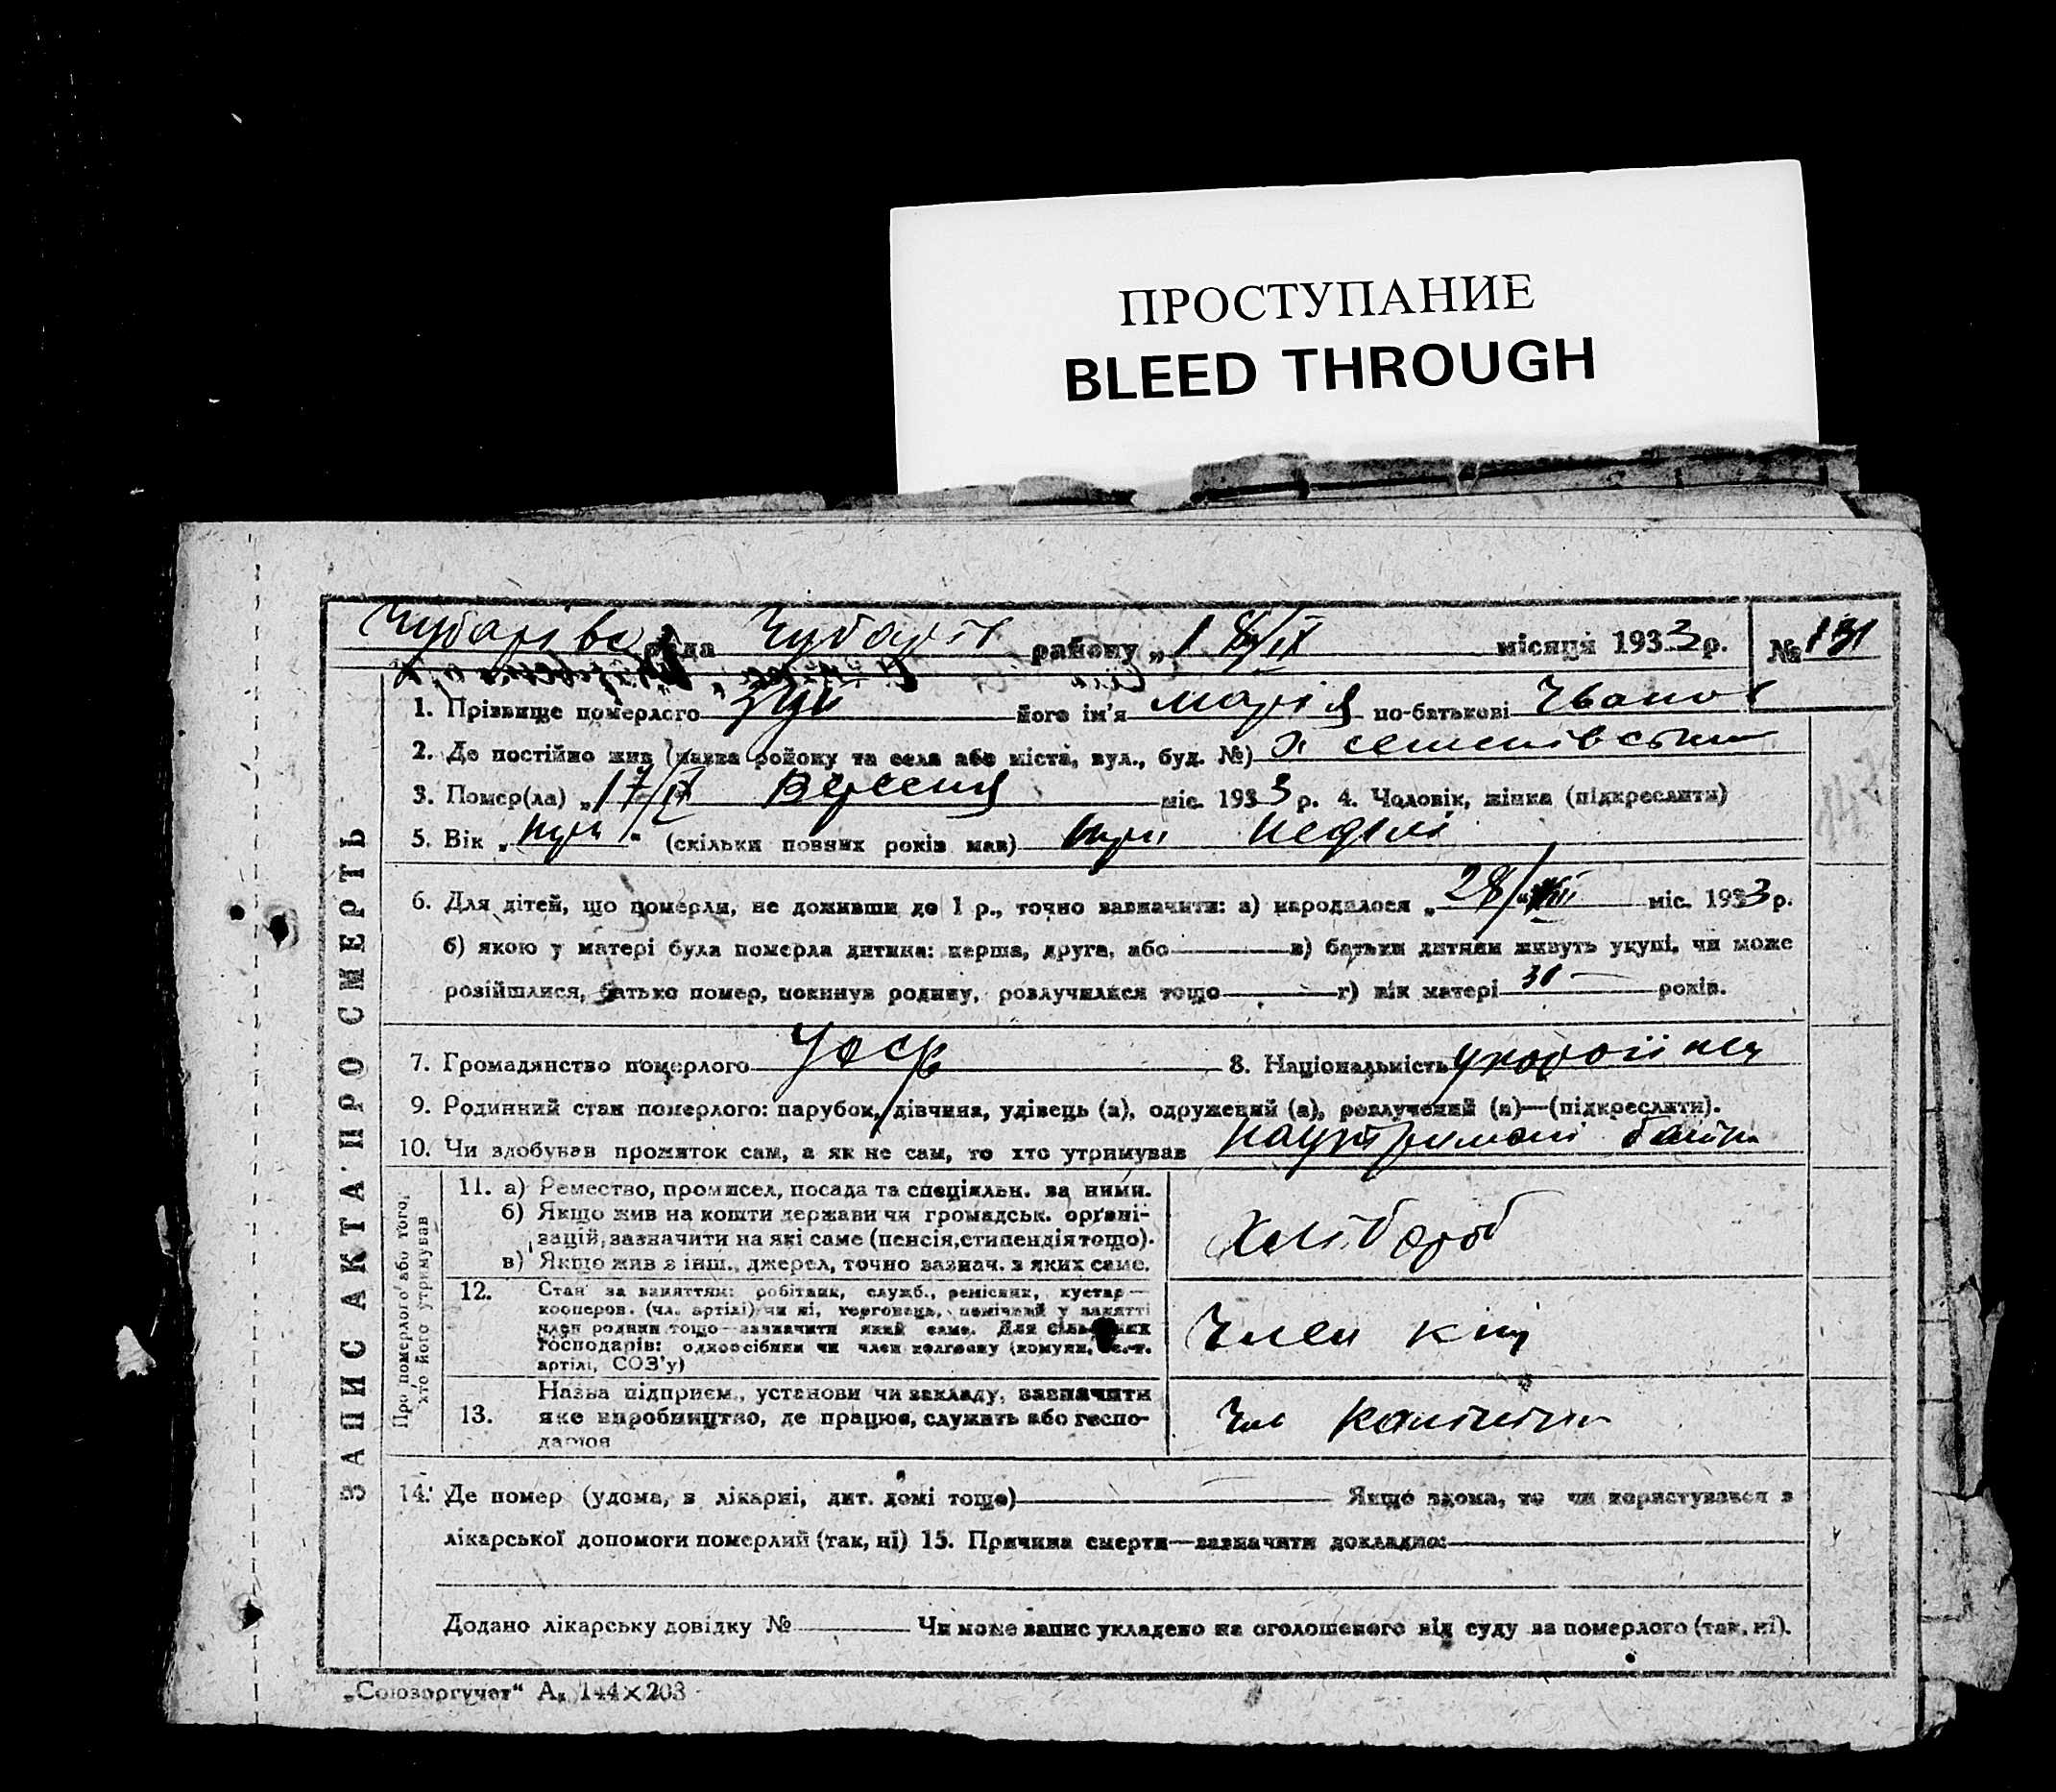 ПРОСТУПАНИЕ
BLEED THROUGH
Чубарівс рада Чубарів району „18/IX місяця 1933 р. № 131
1. Прізвище померлого його ім'я Марія по-батькові Іванов
2. Де постійно жив (назва району та села або міста, вул., буд. №) х
3. Помер(ла) „17/IX Вересня міс. 1933 р. 4. Чоловік, жінка (підкреслити)
5. Вік „три“ (скільки повних років мав) три неділі
6. Для дітей, що померли, не доживши до 1 р., точно зазначити: а) народилося „28/VIII міс. 1933 р.
б) якою у матері була померла дитина: перша, друга, або в) батьки дитини живуть укупі, чи може
розійшлися, батько помер, покинув родину, розлучилися тощо г) вік матері 30 років.
7. Громадянство померлого УССР 8. Національність україінка
9. Родинний стан померлого: парубок, дівчина, удівець (а), одружений (а), розлучений (а)—(підкреслити).
10. Чи здобував прожиток сам, а як не сам, то хто утримував наутримані батька
ЗАПИС АКТА ПРО СМЕРТЬ
Про померлого або того,
хто його утримував
11. а) Ремество, промисел, посада та спеціяльн. за ними.
б) Якщо жив на кошти держави чи громадськ. органі-
зацій, зазначити на які саме (пенсія, стипендія тощо).
в) Якщо жив з інш., джерел, точно зазнач. з яких саме.
Хлібороб
12. Стан за заняттям: робітник, служб., ремісник, кустар—
кооперов. (чл. артілі) чи ні, торговець, помічний у занятті
член родини тощо—зазначити який саме. Для сільських
господарів: одноосібник чи член колгоспу (комуни, с.-г.
артілі, СОЗ'у)
Член
13. Назва підприєм., установи чи закладу, зазначити
яке виробництво, де працює, служить або госпо-
дарює
14. Де помер (удома, в лікарні, дит. домі тощо) Якщо вдома, то чи користувався з
лікарської допомоги померлий (так, ні) 15. Причина смерти—зазначити докладно:
Додано лікарську довідку № Чи може запис укладено на оголошеного від суду за померлого (так, ні).
„Союзоргучет“ А₅ 144×203